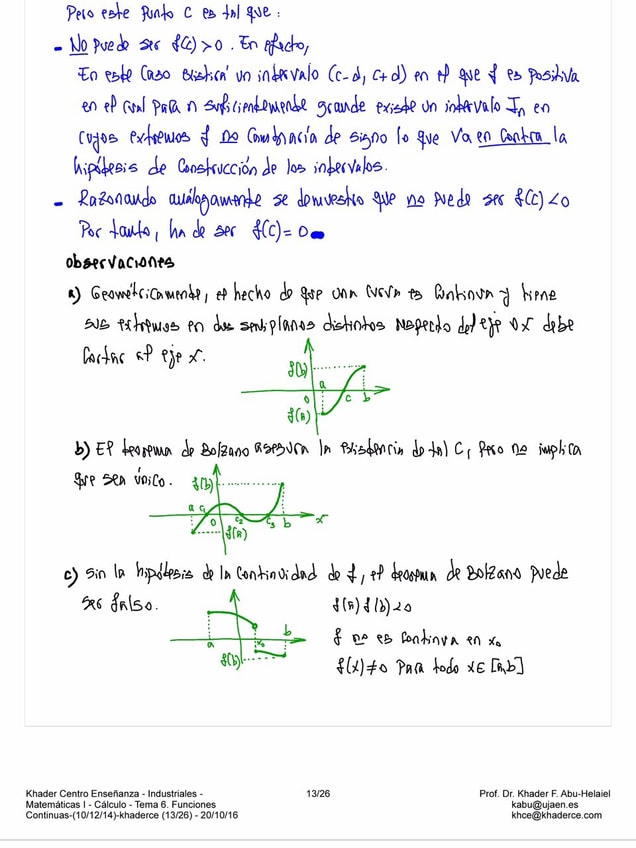 Pero este punto c es tal que:
- No puede ser f(c)>0. En efecto,
En este caso existirá un intervalo (c-d, c+d) en el que f es positiva
en el cual para n suficientemente grande existe un intervalo In en
cuyos extremos f no cambiaría de signo lo que va en contra la
hipótesis de construcción de los intervalos.
- Razonando análogamente se demuestra que no puede ser f(c)<0
Por tanto, ha de ser f(c)=0
observaciones
a) Geométricamente, el hecho de que una curva es continua y tiene
sus extremos en dos semiplanos distintos respecto del eje ox debe
cortar al eje x.
f(b)
a
0 c b
f(a)
b) El teorema de Bolzano asegura la existencia de tal c, pero no implica
que sea único.
f(b)
a c1 0 c2 c3 b x
f(a)
c) sin la hipótesis de la continuidad de f, el teorema de Bolzano puede
ser falso.
f(a) f(b) <0
f no es continua en x0
f(x)≠0 para todo x∈[a,b]
a x0 b
f(b)
Khader Centro Enseñanza - Industriales -
Matemáticas I - Cálculo - Tema 6. Funciones
Continuas-(10/12/14)-khaderce (13/26) - 20/10/16
13/26
Prof. Dr. Khader F. Abu-Helaiel
kabu@ujaen.es
khce@khaderce.com